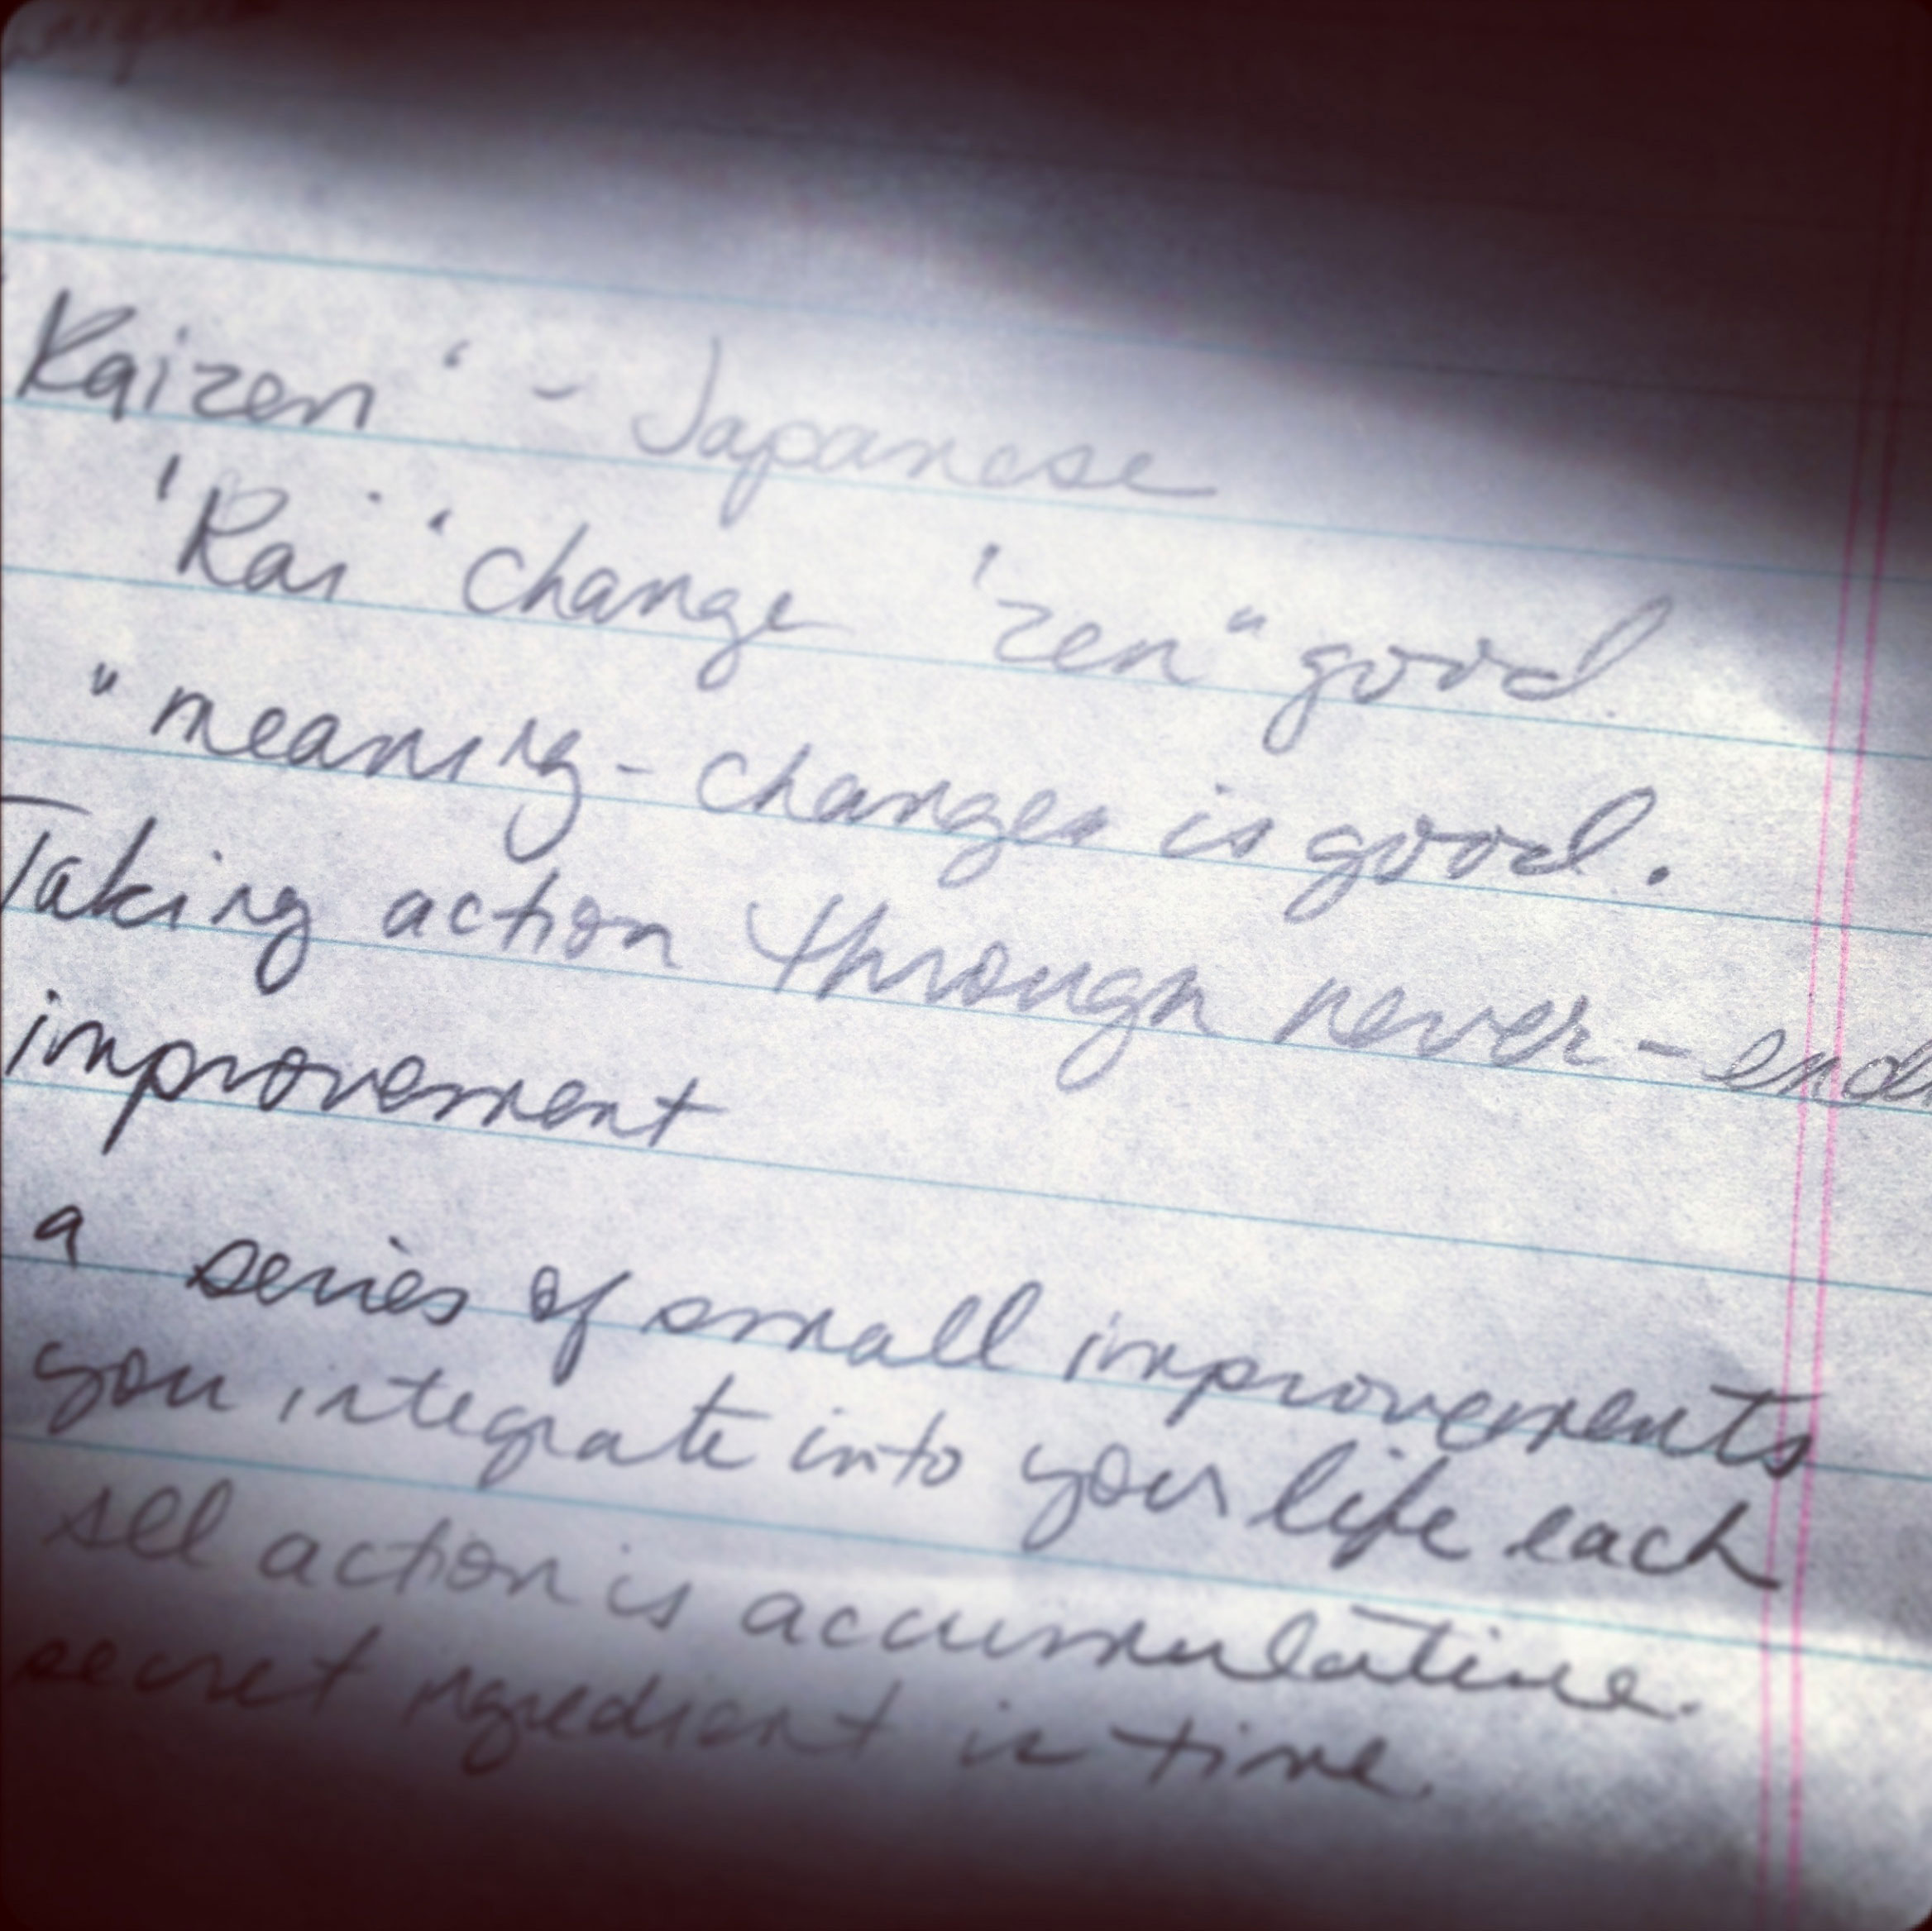 'Kaizen' - Japanese
'Kai' change 'zen" good
" meaning - changes is good.
Taking action through never-end
improvement
a series of small improvements
you integrate into your life each
action is accumulative.
secret ingredient is time.